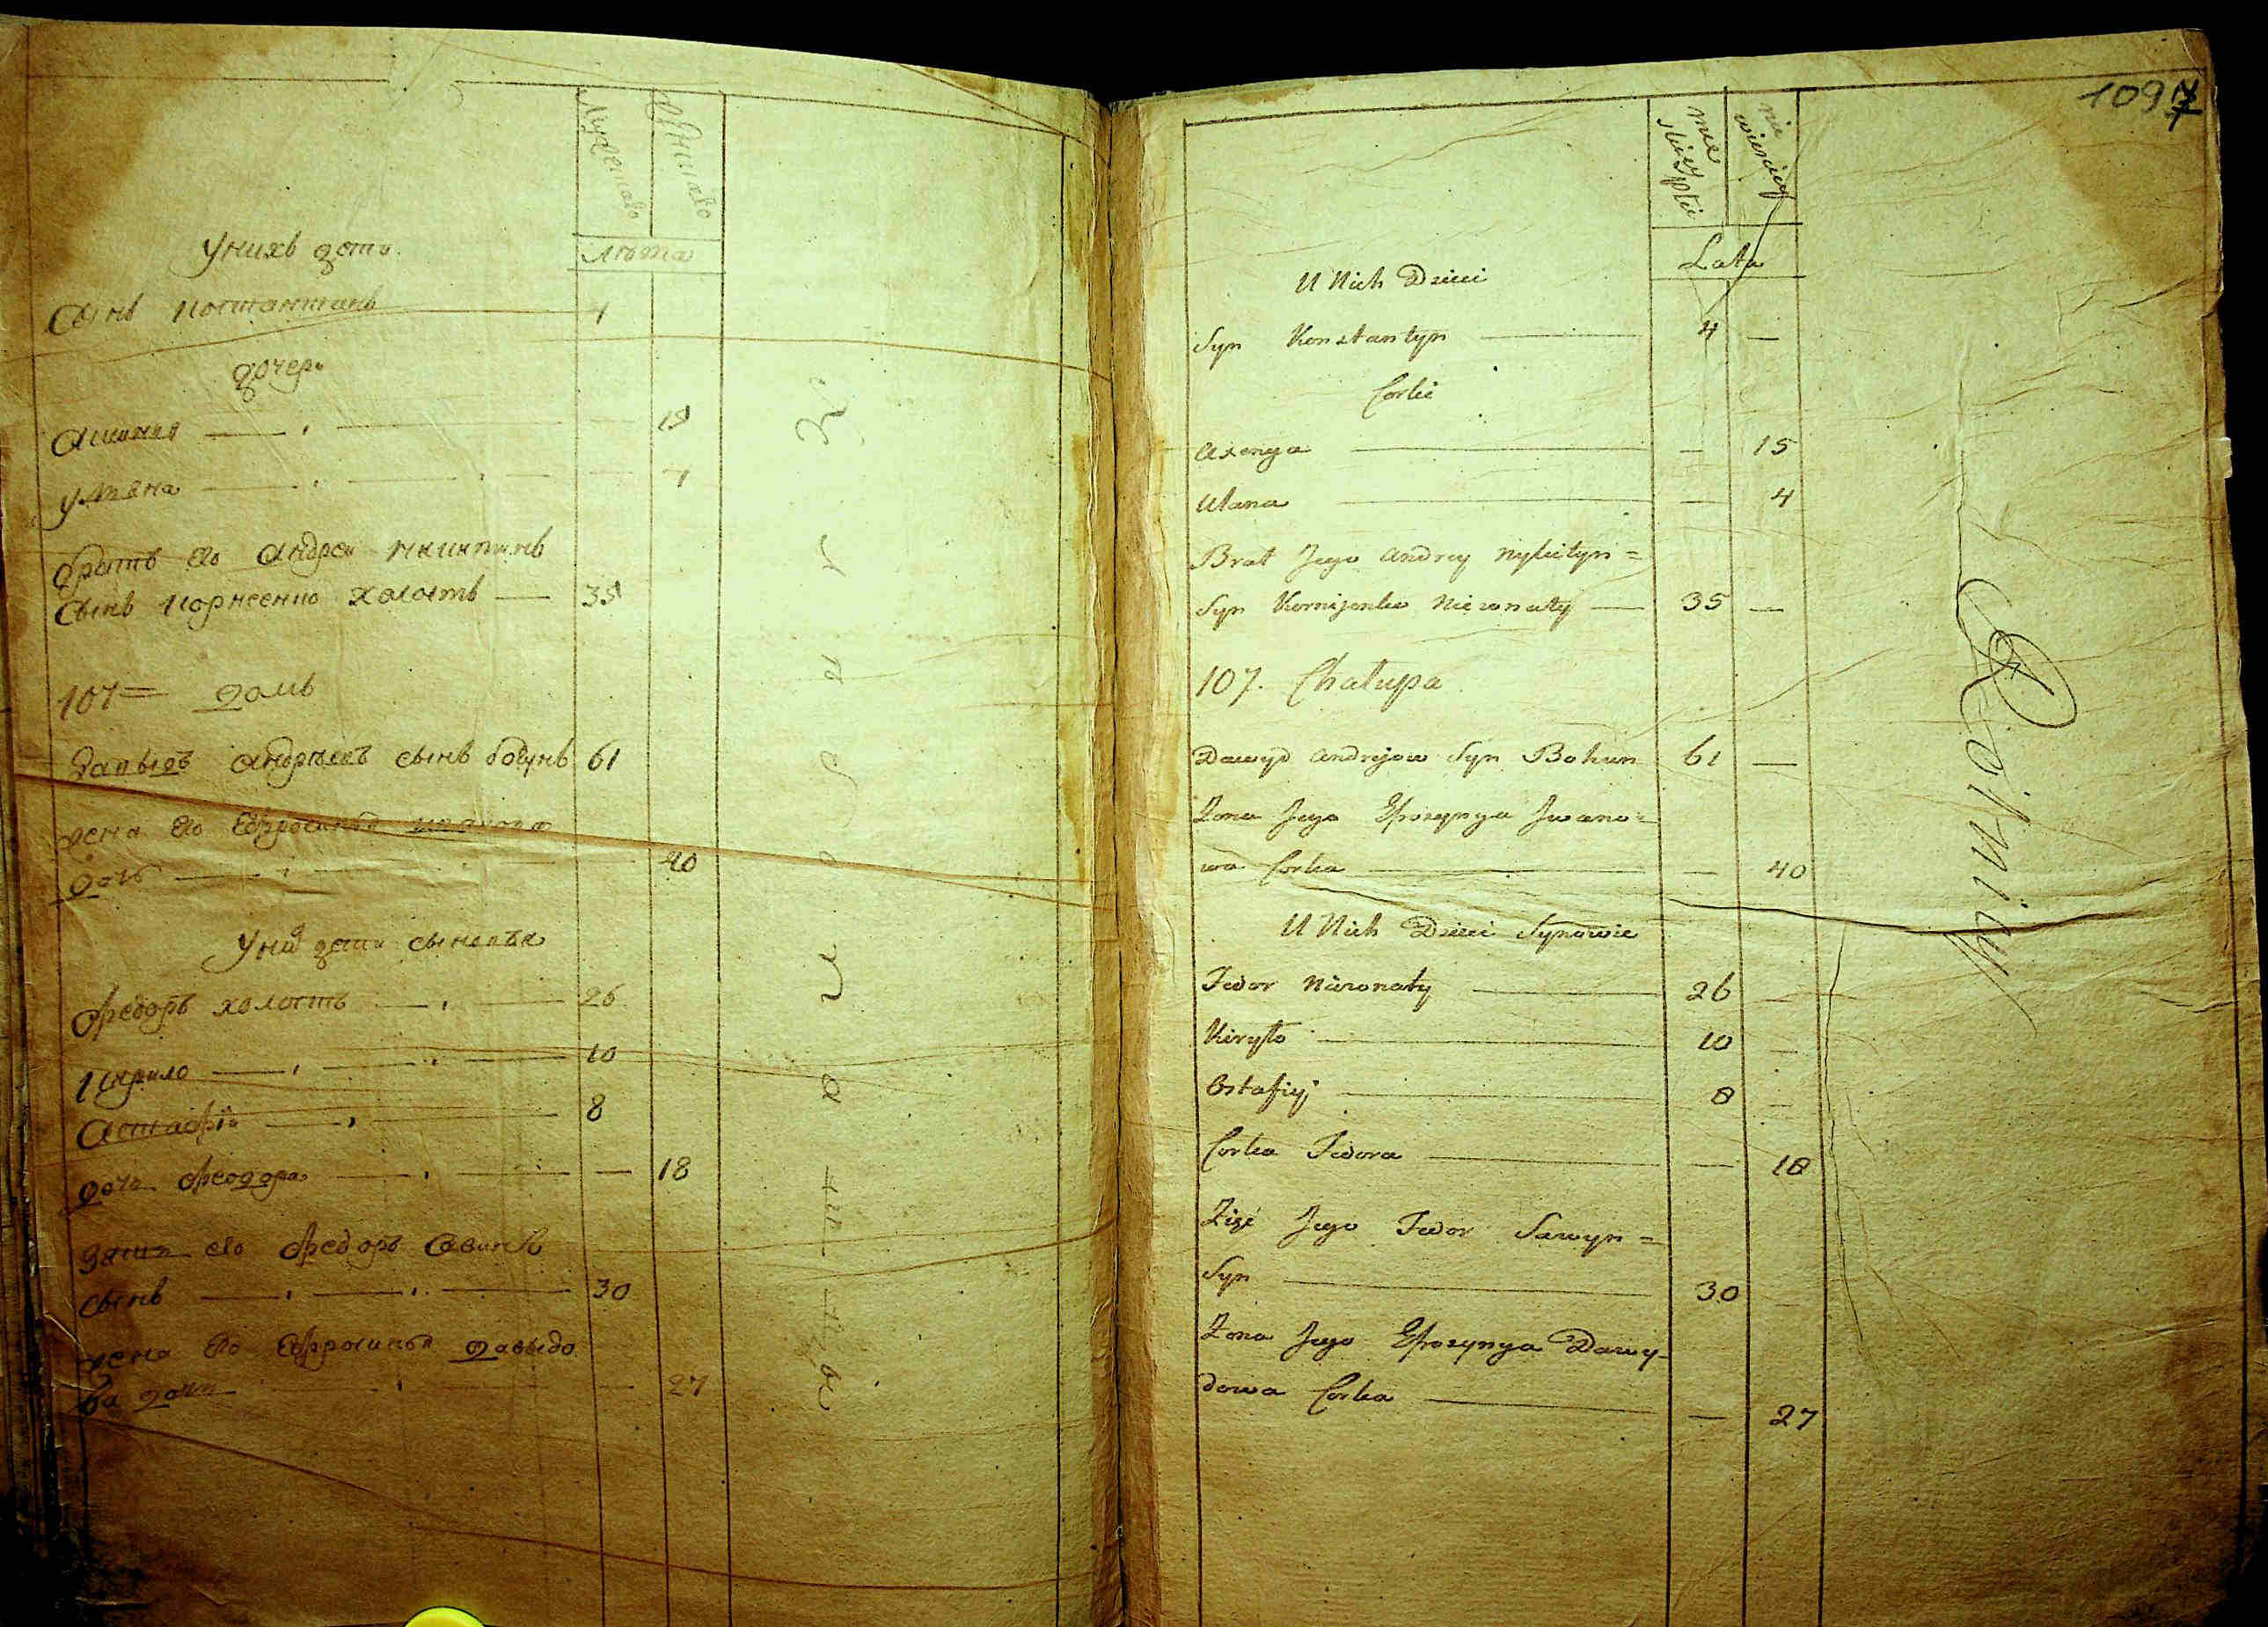 Мужеска Женска
Лѣта
У нихъ дети
Сынъ Костантинъ 4
дочери
Аксиния 15
Уляна 4
братъ его Андрей Никитинъ
сынъ Корнеенко холостъ 35
107 = домъ
Давыдъ Андрѣевъ сынъ богунъ 61
жена его Ефросинья Иванова
дочь 40
У них дети сыновья
Федоръ холостъ 26
Кирило 10
Астафiй 8
дочь Феодора 18
Зять его Федоръ Савинъ
сынъ 30
жена его Ефросинья Давыдо
ва дочь 27
1097
męskiey płci
niewieściey
Lata
U Nich Dzieci
Syn Konstantyn 4 —
Corki
Axenya — 15
Ulana — 4
Brat Jego Andrey Nykityn =
Syn Kornijenko Nieżonaty 35 —
107. Chałupa
Dawyd Andrejow Syn Bohun 61 —
Żona Jego Efrozynya Iwano =
wa Corka — 40
U Nich Dzieci Synowie
Fedor Nieżonaty 26 —
Kiryło 10 —
Ostafiy 8 —
Corka Fedora — 18
Zięć Jego Fedor Sawyn =
Syn 30 —
Żona Jego Efrozynya Dawy-
dowa Corka — 27
Rolniey